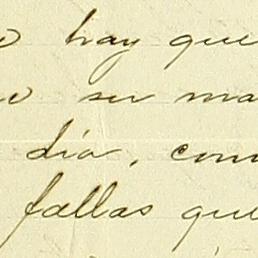 hay que
su ma
dia, com
fallas que